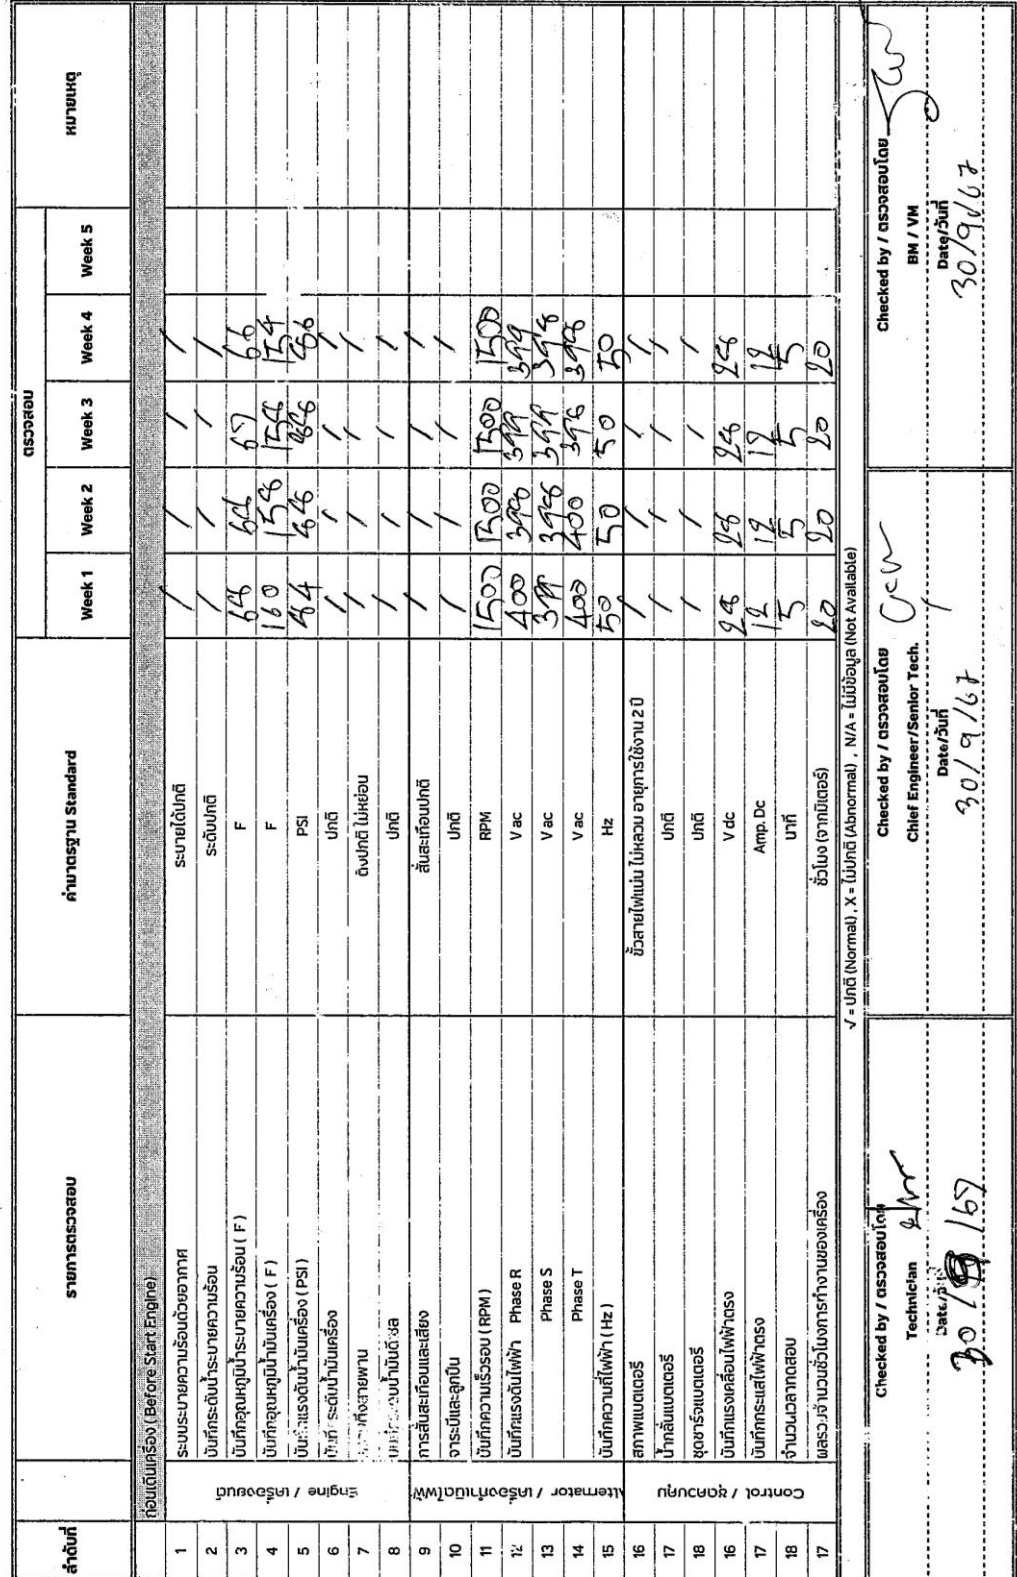 ลำดับที่ รายการตรวจสอบ ค่ามาตรฐาน Standard ตรวจสอบ หมายเหตุ
Week 1 Week 2 Week 3 Week 4 Week 5
ก่อนเดินเครื่อง (Before Start Engine)
Engine / เครื่องยนต์
1 ระบบระบายความร้อนด้วยอากาศ ระบายได้ปกติ / / / /
2 บันทึกระดับน้ำระบายความร้อน ระดับปกติ / / / /
3 บันทึกอุณหภูมิน้ำระบายความร้อน ( F ) F 67 66
4 บันทึกอุณหภูมิน้ำมันเครื่อง ( F ) F 160 158 158 154
5 แรงดับน้ำมันเครื่อง (PSI) PSI
6 ระดับน้ำมันเครื่อง ปกติ / / / /
7 ตึงสายพาน ตึงปกติ ไม่หย่อน / / / /
8 ปกติ / / / /
Alternator / เครื่องกำเนิดไฟฟ้า
9 การสั่นสะเทือนและเสียง สั่นสะเทือนปกติ / / / /
10 จาระบีและลูกปืน ปกติ / / / /
11 บันทึกความเร็วรอบ ( RPM ) RPM 1500 1500 1500 1500
12 บันทึกแรงดันไฟฟ้า Phase R V ac 400 398 399 399
13 Phase S V ac 399 398 399 398
14 Phase T V ac 400 400 398 398
15 บันทึกความถี่ไฟฟ้า ( Hz ) Hz 50 50 50 50
Control / ชุดควบคุม
16 สภาพแบตเตอรี่ ขั้วสายไฟแน่น ไม่หลวม อายุการใช้งาน 2 ปี / / / /
17 น้ำกลั่นแบตเตอรี่ ปกติ / / / /
18 ชุดชาร์จแบตเตอรี่ ปกติ / / / /
16 บันทึกแรงเคลื่อนไฟฟ้าตรง V dc 28 28 28 28
17 บันทึกกระแสไฟฟ้าตรง Amp. Dc 12 12 12 12
18 จำนวนเวลาทดสอบ นาที 5 5 5 5
17 ผลรวมจำนวนชั่วโมงการทำงานของเครื่อง ชั่วโมง (จากมิเตอร์) 20 20 20 20
√ = ปกติ (Normal) , X = ไม่ปกติ (Abnormal) , N/A = ไม่มีข้อมูล (Not Available)
Checked by / ตรวจสอบโดย
Technician
Date/วันที่
Checked by / ตรวจสอบโดย
Chief Engineer/Senior Tech.
Date/วันที่
30/9/67
Checked by / ตรวจสอบโดย
BM / VM
Date/วันที่
30/9/67